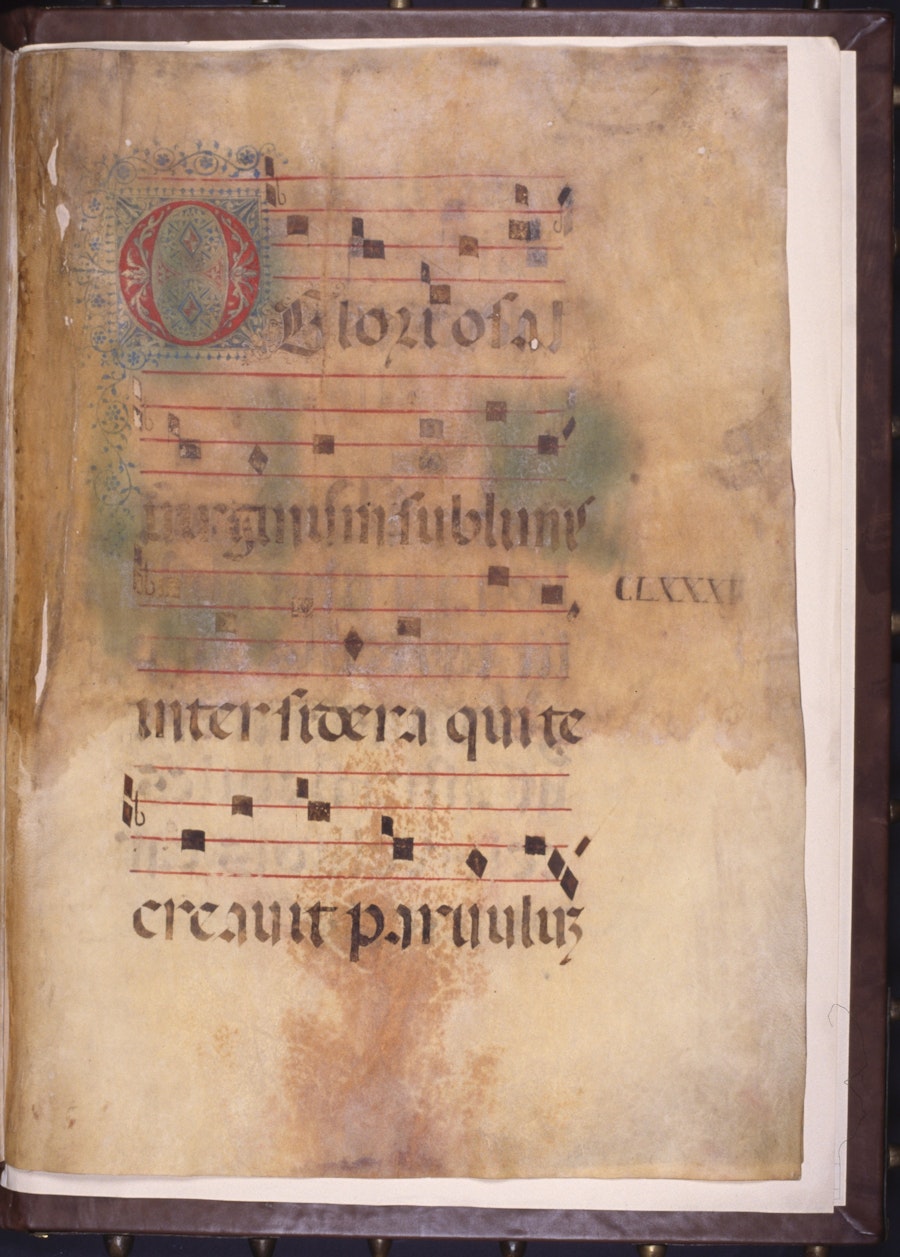 O Gloriosa
virginum sublimis
CLXXXI
inter sidera qui te
creavit parvuluz